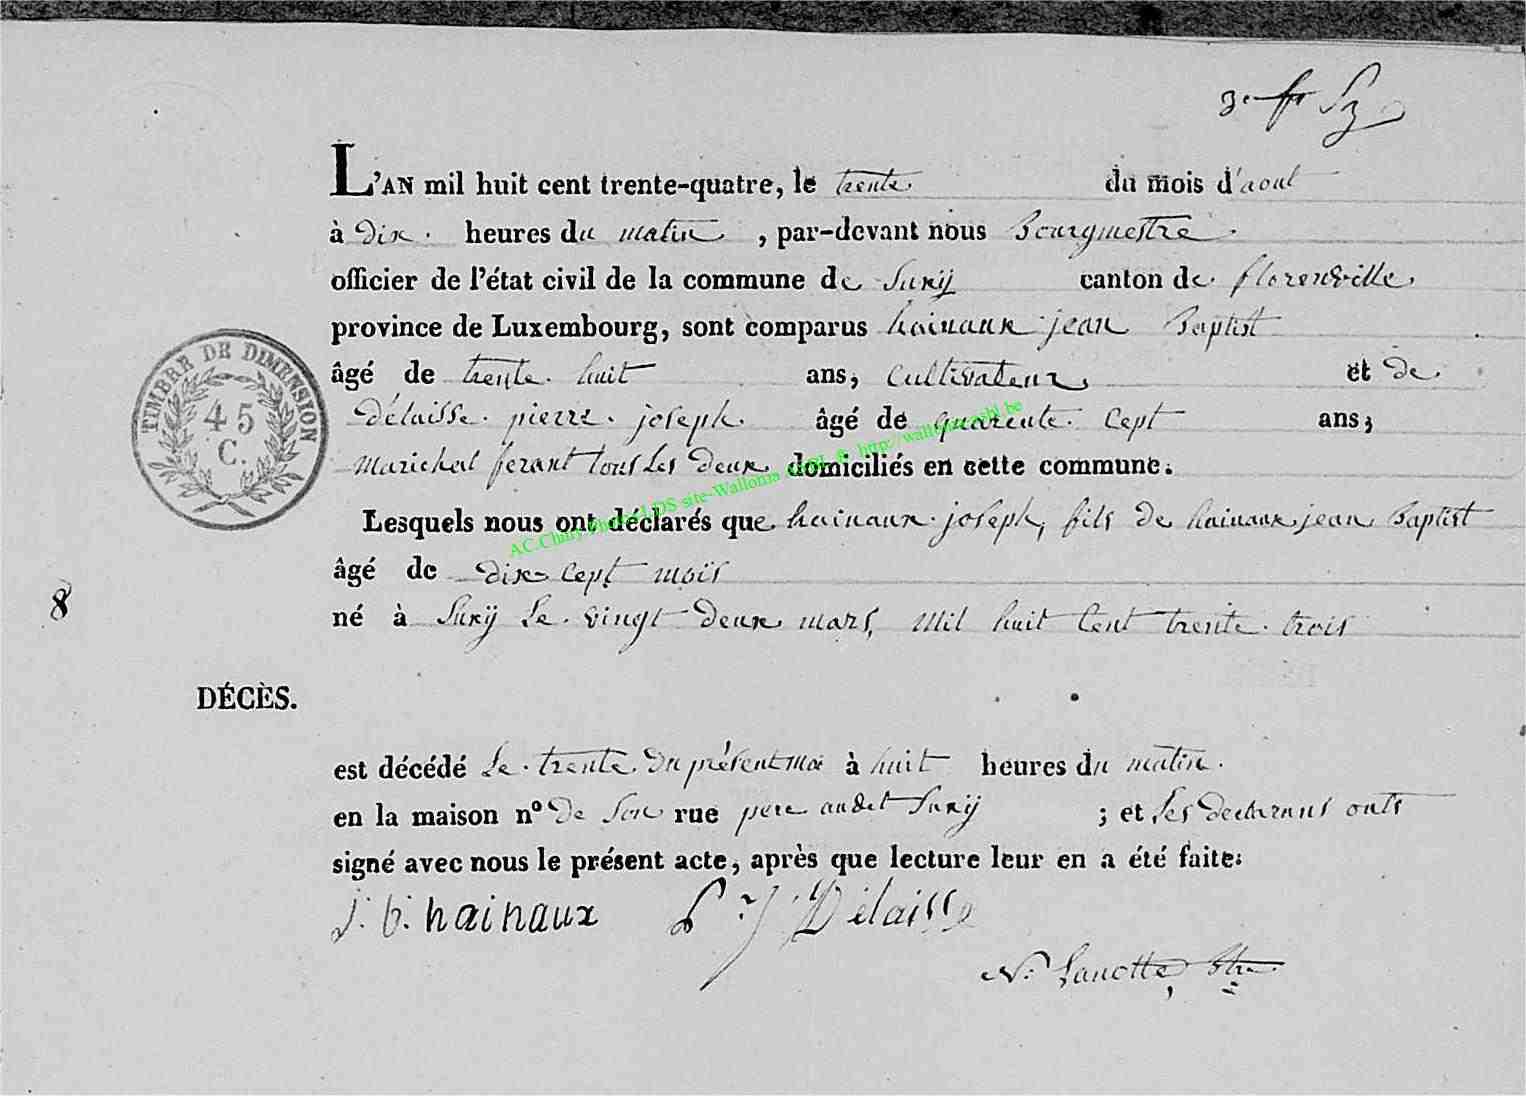 L'AN mil huit cent trente-quatre, le trente du mois d'aout
à dix heures du matin, par-devant nous Bourgmestre
officier de l'état civil de la commune de Suxÿ canton de florenville
province de Luxembourg, sont comparus hainaux jean Baptist
âgé de trente huit ans, cultivateur et de
Délaisse pierre joseph âgé de quarente cept ans;
marichal ferant tous les deux domiciliés en cette commune.
Lesquels nous ont déclarés que hainaux joseph, fils de hainaux jean Baptist
âgé de dix cept mois
né à Suxÿ le vingt deux mars, mil huit cent trente trois
TIMBRE DE DIMENSION
45
C.
AC.Chiny Photos LDS site-Wallonia ASBL © http://walloniasbl.be
8
DÉCÈS.
est décédé le trente du présent moi à huit heures du matin
en la maison nº de son rue pere audit Suxÿ ; et les declarans onts
signé avec nous le présent acte, après que lecture leur en a été faite.
j. b. hainaux P J Délaisse
N. Lanotte, Btre